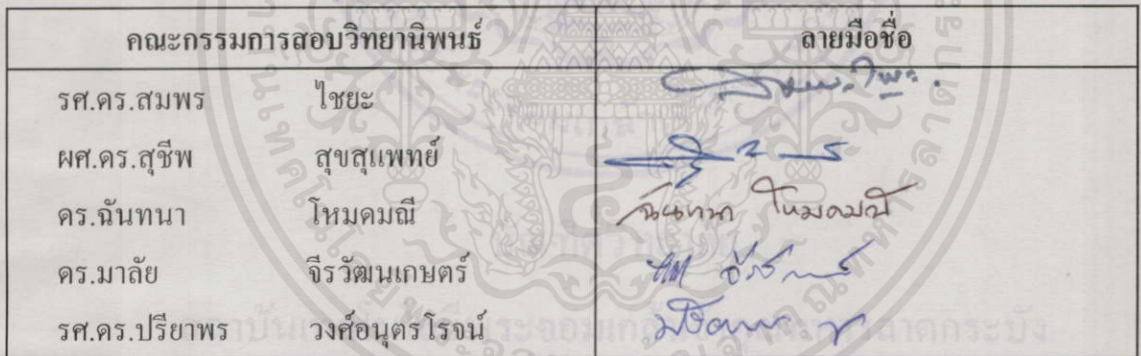 คณะกรรมการสอบวิทยานิพนธ์ ลายมือชื่อ
รศ.ดร.สมพร ไชยะ
ผศ.ดร.สุชีพ สุขสุแพทย์
ดร.ฉันทนา โหมดมณี ฉันทนา โหมดมณี
ดร.มาลัย จีรวัฒนเกษตร์
รศ.ดร.ปรียาพร วงศ์อนุตรโรจน์